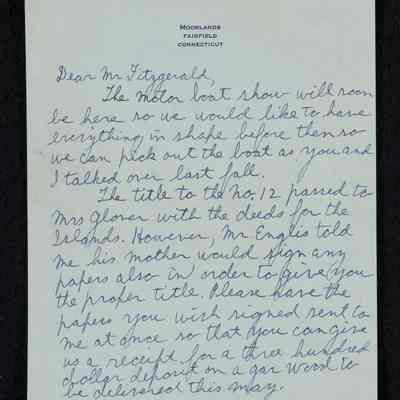 MOORLANDS
FAIRFIELD
CONNECTICUT
Dear Mr Fitzgerald,
The motor boat show will soon
be here so we would like to have
everything in shape before then so
we can pick out the boat as you and
I talked over last fall.
The title to the No. 12 passed to
Mrs Glover with the deeds for the
Islands. However, Mr Englis told
me his mother would sign any
papers also in order to give you
the proper title. Please have the
papers you wish signed sent to
me at once so that you can give
us a receipt for a three hundred
dollar deposit on a gar wood to
be delivered this May.